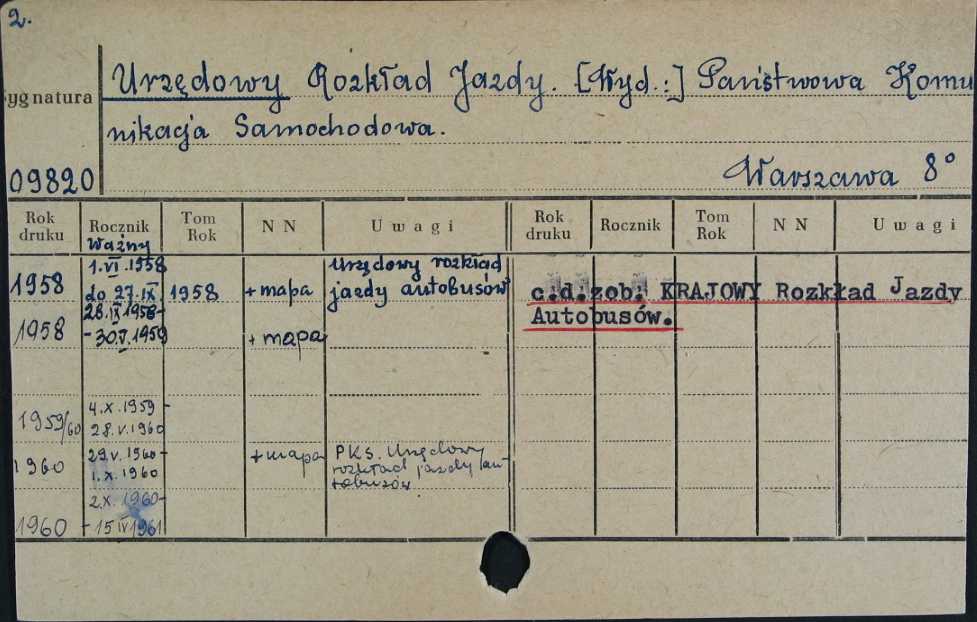 2.
Urzędowy Rozkład Jazdy. [Wyd.:] Państwowa Komu
nikacja Samochodowa.
Warszawa 8°
ygnatura
09820
Rok druku Rocznik Tom Rok NN Uwagi Rok druku Rocznik Tom Rok NN Uwagi
Ważny
1.VI.1958 Urzędowy rozkład
1958 do 27.IX. 1958 + mapa jazdy autobusów c.d.zob: KRAJOWY Rozkład Jazdy
28.IX 1958- Autobusów.
1958 -30.V.1959 + mapa
4.X.1959-
1959/60 28.V.1960
29.V.1960- + mapa PKS. Urzędowy
1960 1.X.1960 rozkład jazdy au-
tobusów.
2.X.1960-
1960 -15 IV 1961